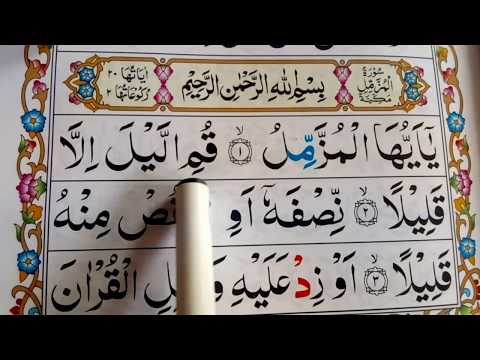 سُوْرَةُ الْمُزَّمِّلِ مَكِّيَّةٌ
بِسْمِ اللهِ الرَّحْمٰنِ الرَّحِيْمِ
اٰيَاتُهَا ٢٠
رُكُوْعَاتُهَا ٢
يٰۤاَيُّهَا الْمُزَّمِّلُ ۙ‏ ١ قُمِ الَّيْلَ اِلَّا
قَلِيْلًا ۙ‏ ٢ نِّصْفَهٗۤ اَوِ مِنْهُ
قَلِيْلًا ۙ‏ ٣ اَوْ زِدْ عَلَيْهِ الْقُرْاٰنَ